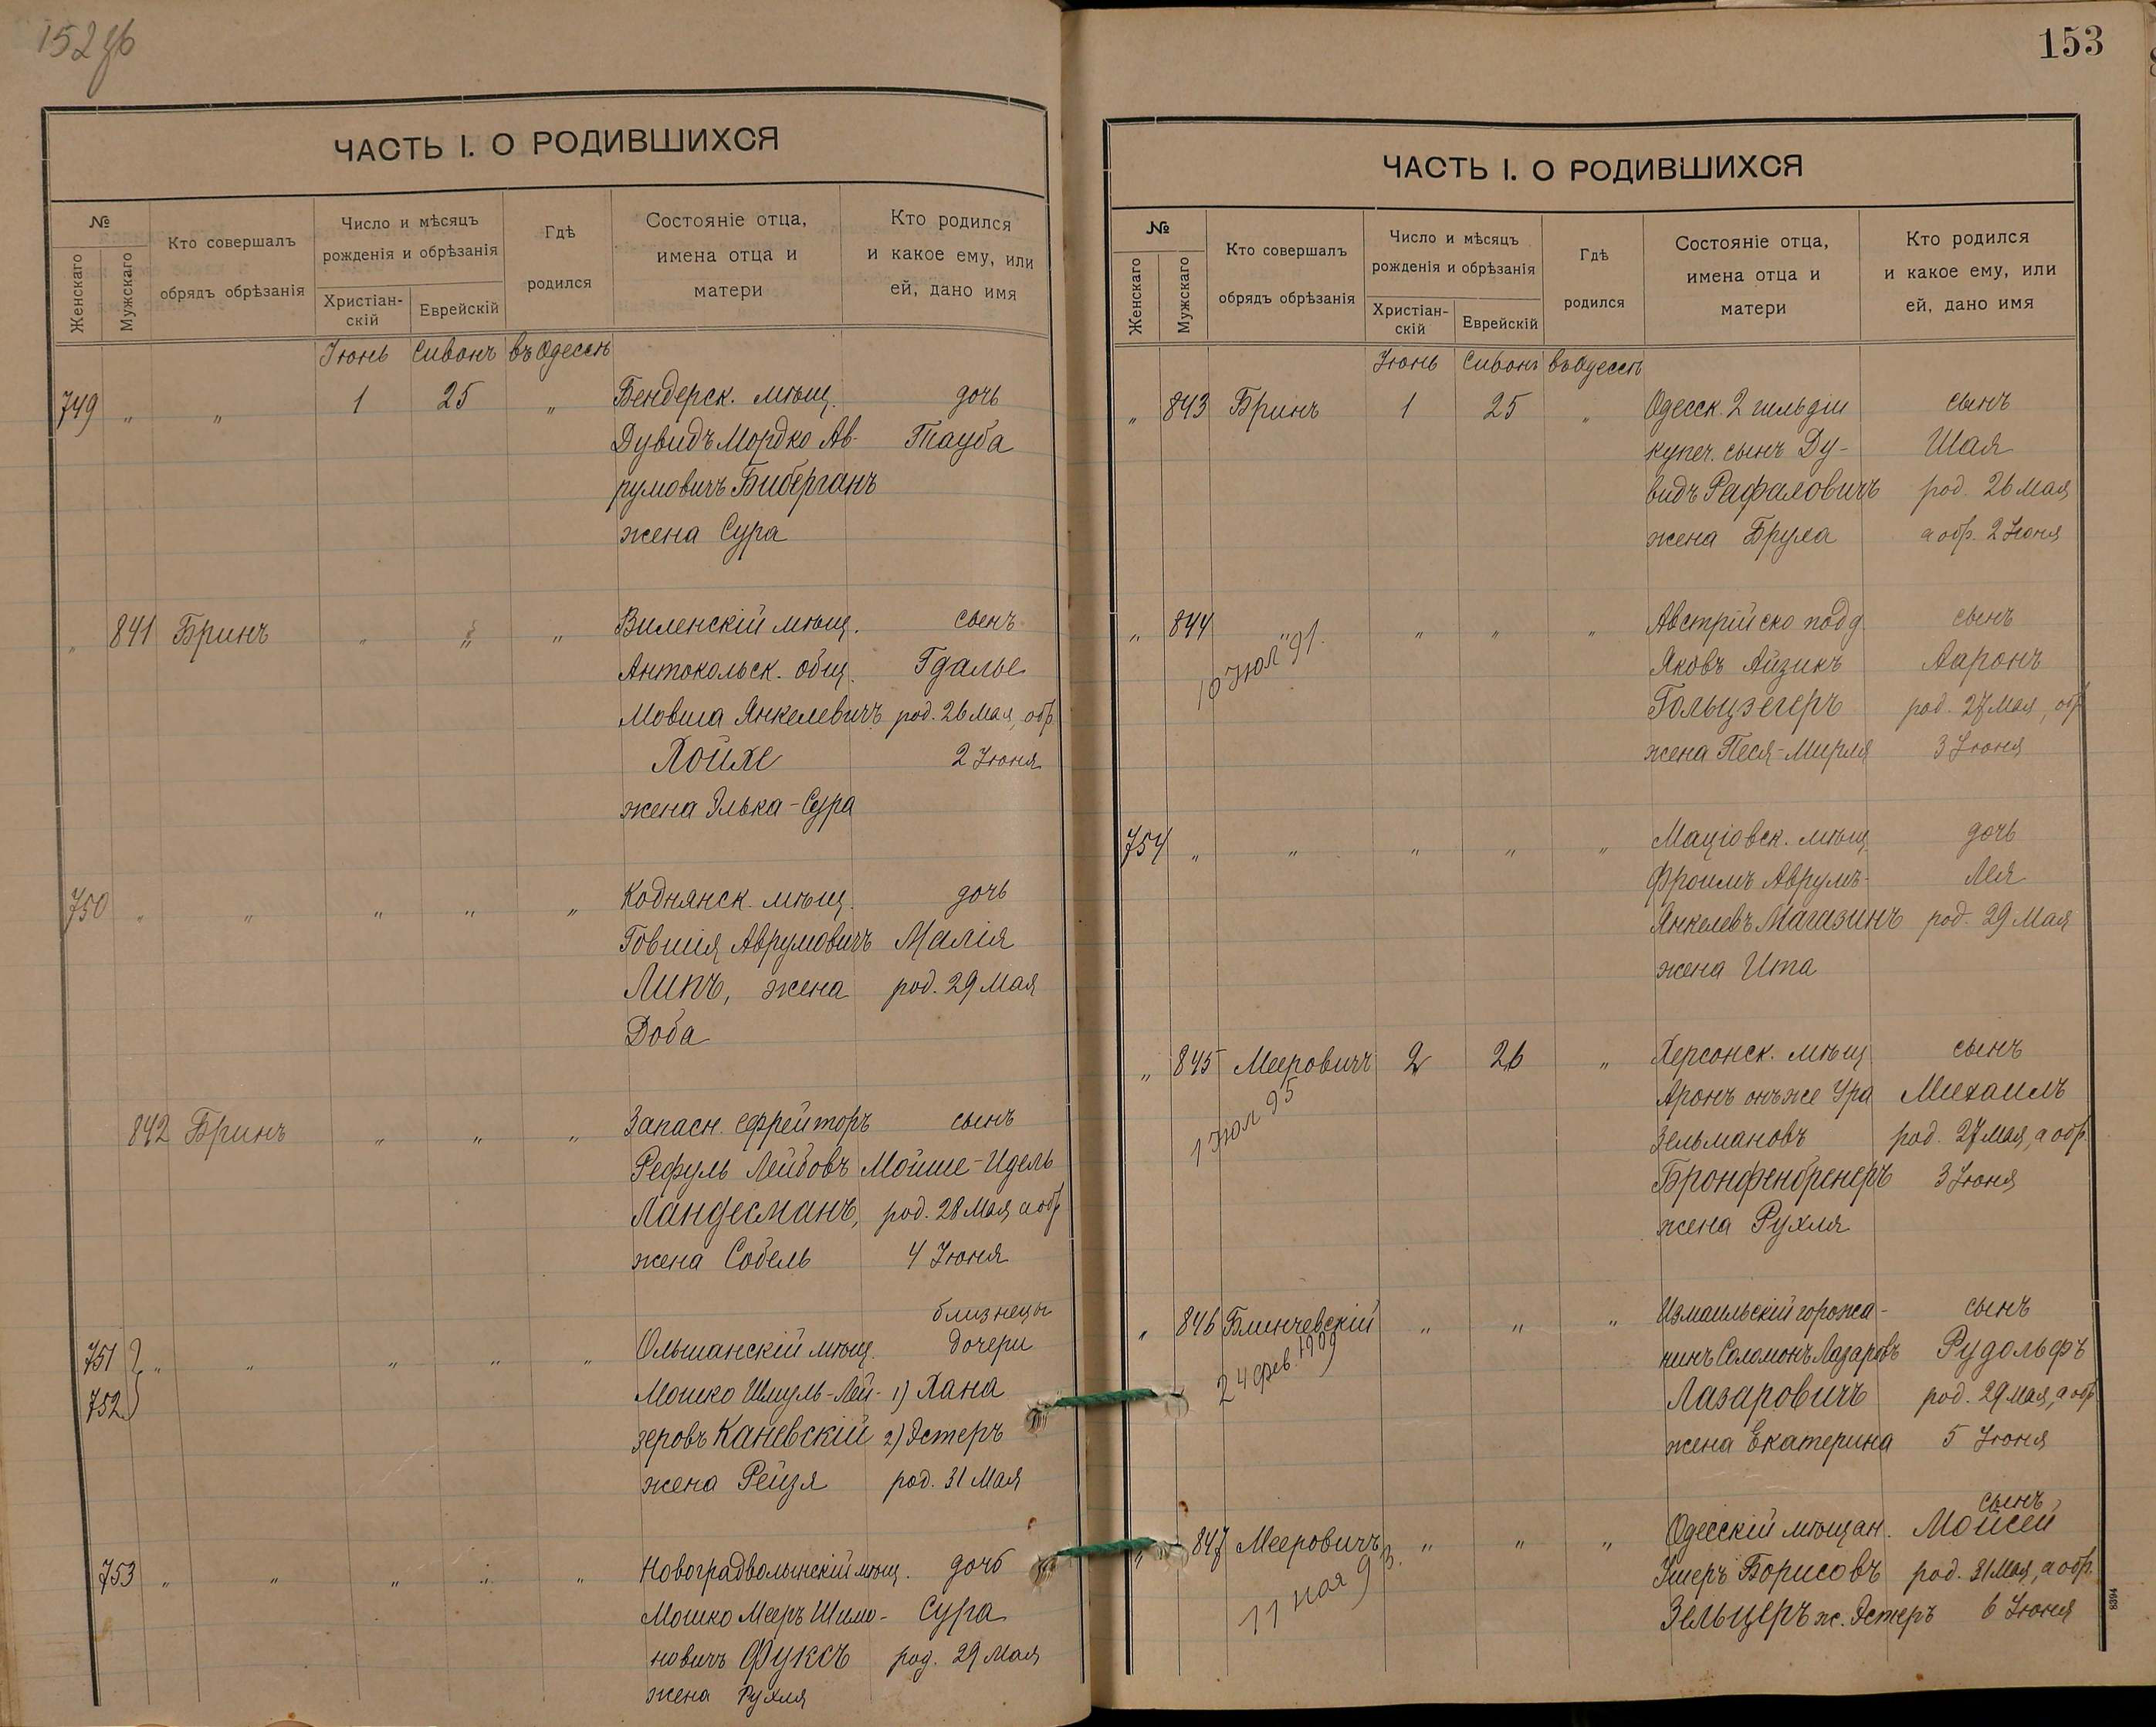 152 об
ЧАСТЬ I. О РОДИВШИХСЯ
№
Женскаго
Мужскаго
Кто совершалъ
обрядъ обрѣзанія
Число и мѣсяцъ
рожденія и обрѣзанія
Христіан-
скій
Еврейскій
Гдѣ
родился
Состояніе отца,
имена отца и
матери
Кто родился
и какое ему, или
ей, дано имя
Іюнь Сивонъ въ Одессѣ
749 " " 1 25 " Бендерск. мѣщ. дочь
Дувидъ Мордко Ав- Тауба
румовичъ Биберганъ
жена Сура
" 841 Бринъ " " " Виленскій мѣщ. сынъ
Антокольск. общ. Гдалье
Мовша Янкелевичъ род. 26 Мая, обр
Хойхе 2 Іюня
жена Элька-Сура
750 " " " " " Коднянск. мѣщ. дочь
Говшія Аврумовичъ Малія
Липъ, жена род. 29 Мая
Доба
842 Бринъ " " " Запасн. ефрейторъ сынъ
Рефуль Лейбовъ Мойше-Идель
Ландесманъ, род. 28 Мая, а обр
жена Собель 4 Іюня
близнецы
751 " " " " " Ольшанскій мѣщ. дочери
752 Мошко Шмуль-Лей- 1) Хана
зеровъ Каневскій 2) Эстеръ
жена Рейзя род. 31 Мая
753 " " " " " Новоградволынскій мѣщ. дочь
Мошко Мееръ Шимо- Сура
новичъ Фуксъ род. 29 Мая
жена Рухля
153
ЧАСТЬ I. О РОДИВШИХСЯ
№
Женскаго
Мужскаго
Кто совершалъ
обрядъ обрѣзанія
Число и мѣсяцъ
рожденія и обрѣзанія
Христіан-
скій
Еврейскій
Гдѣ
родился
Состояніе отца,
имена отца и
матери
Кто родился
и какое ему, или
ей, дано имя
Іюнь Сивонъ въ Одессѣ
" 843 Бринъ 1 25 " Одесск. 2 гильдіи сынъ
купеч. сынъ Ду- Шая
видъ Рафаловичъ род. 26 Мая
жена Бруха а обр. 2 Іюня
" 844 " " " " Австрійско подд сынъ
Яковъ Айзикъ Ааронъ
Гольцэгеръ род. 27 Мая, обр
жена Песя-Мирля 3 Іюня
754 " " " " " Маціовск. мѣщ дочь
Фроимъ Аврумъ- Лея
Янкелевъ Магазинъ род. 29 Мая
жена Ита
" 845 Мееровичъ 2 26 " Херсонск. мѣщ сынъ
1 Іюл 95
Аронъ онъ же Ура Михаилъ
Зельмановъ род. 27 Мая, а обр.
Бронфенбренеръ 3 Іюня
жена Рухля
" 846 Блинчевскій " " " Измаильскій горожа- сынъ
24 фев. 1909
нинъ Соломонъ Лазаровъ Рудольфъ
Лазаровичъ род. 29 Мая, а обр
жена Екатерина 5 Іюня
сынъ
" 847 Мееровичъ " " " Одесскій мѣщан. Мойсей
11 мая 93.
Ушеръ Борисовъ род. 31 Мая, а обр.
Зельцеръ ж. Эстеръ 6 Іюня
8394